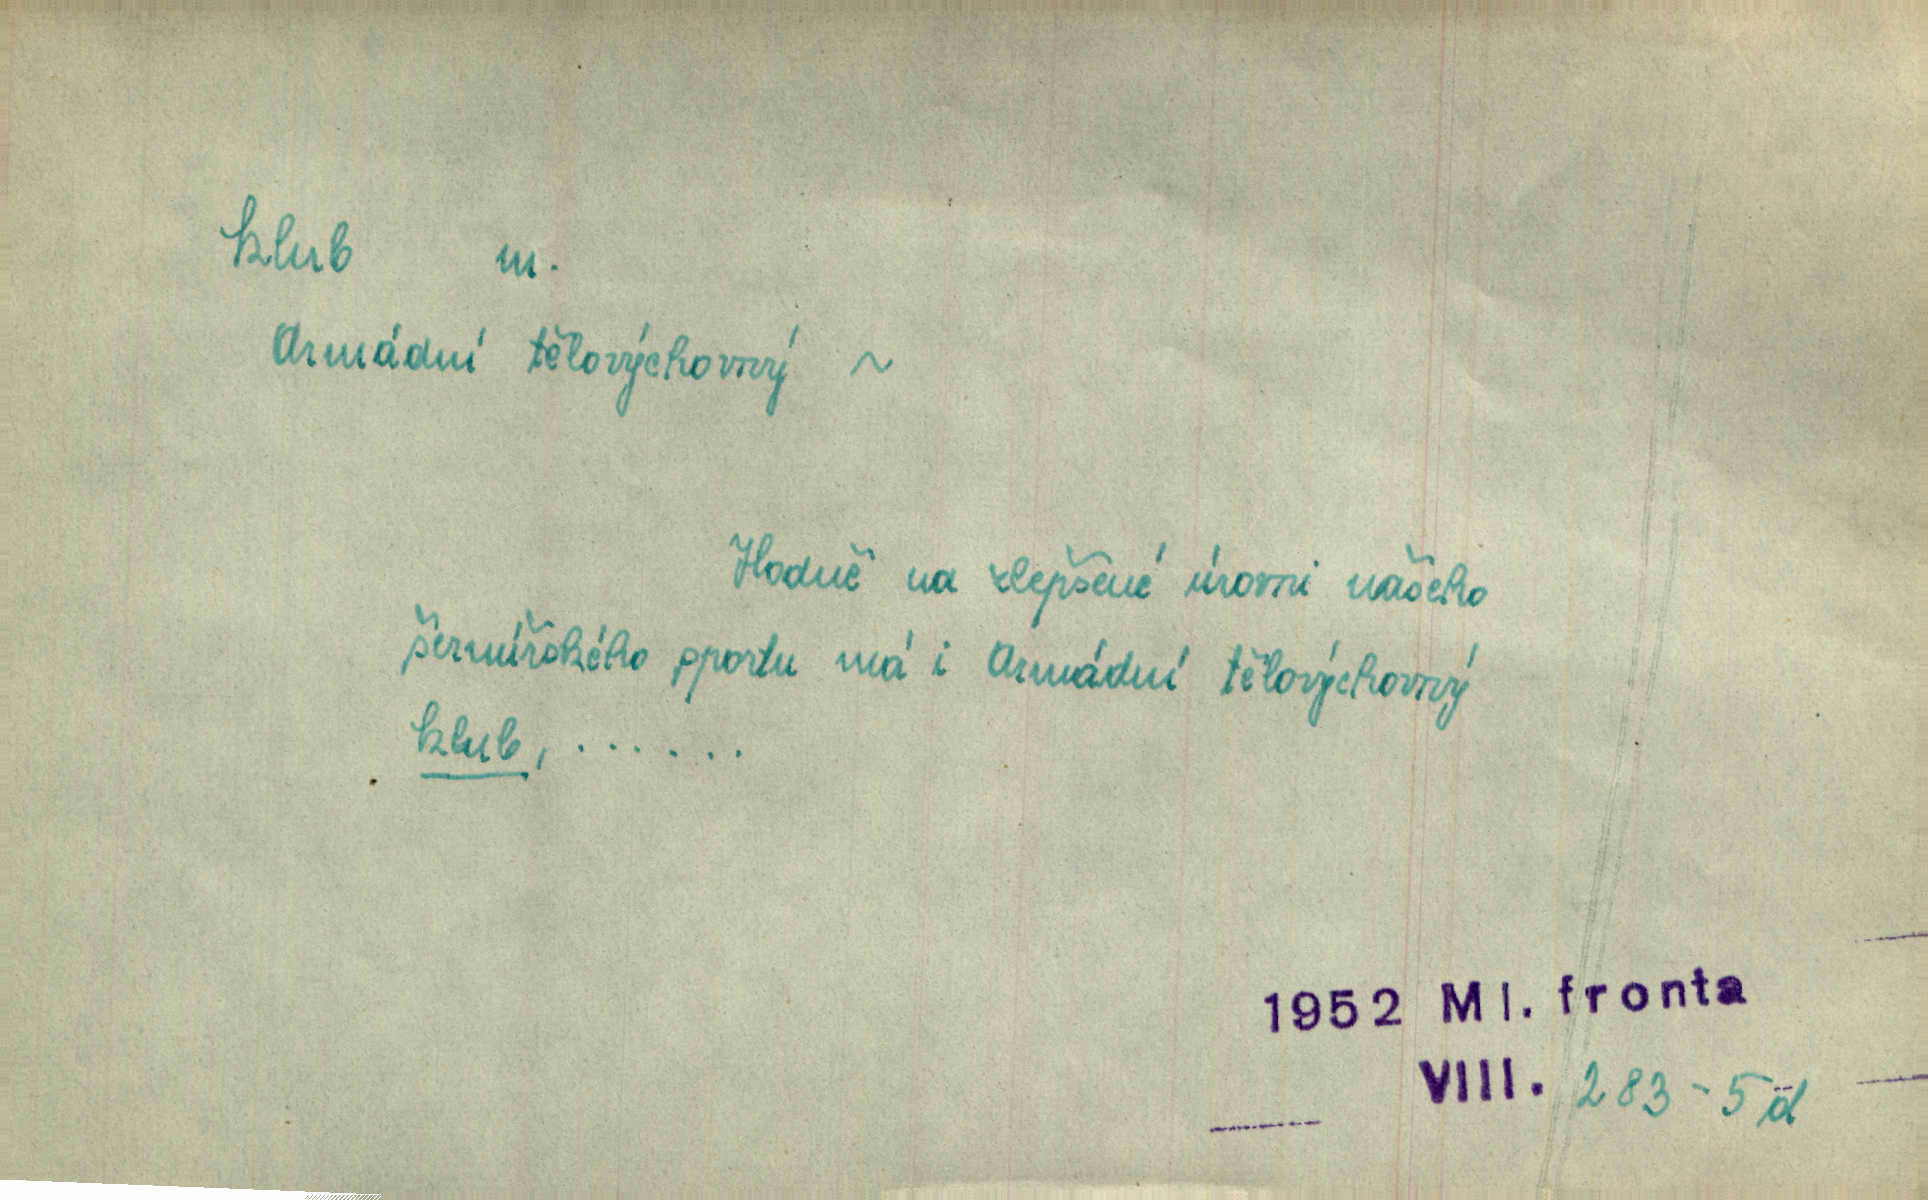 klub m.
Armádní tělovýchovný ~
Hodně na zlepšené úrovni našeho
šermířského sportu má i Armádní tělovýchovný
klub, . . . . . .
1952 Ml. fronta
VIII. 283-5d